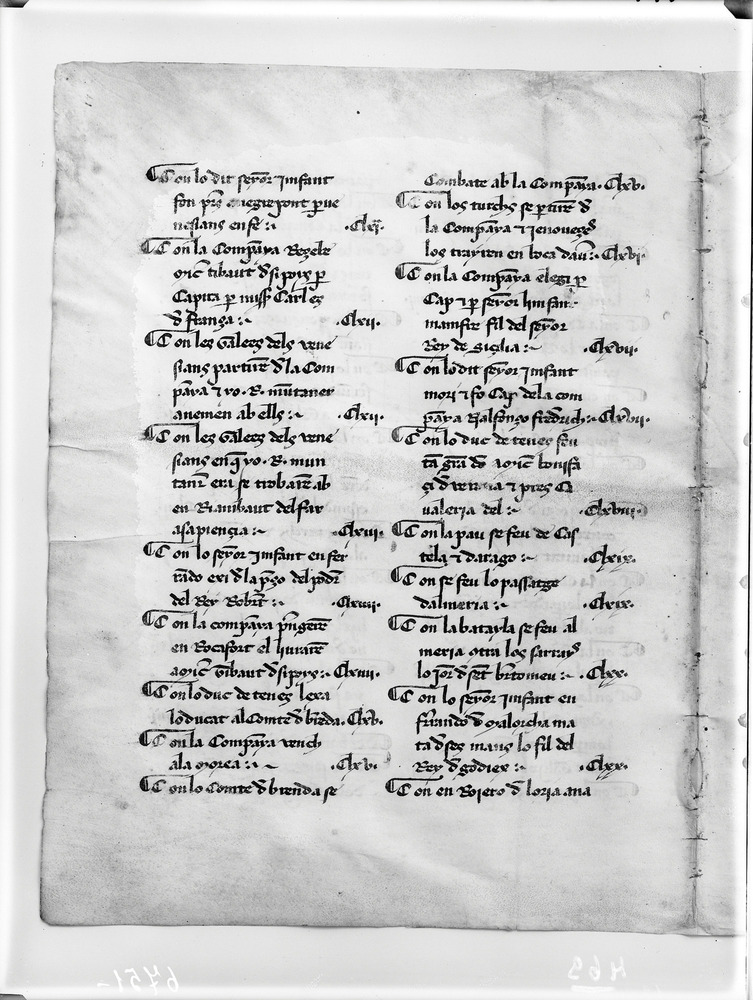 Con lo dit senyor Jnfant
fon pres a negrepont per ve
nesians en fe .Clxi.
Con la Companya Regebe
micer tibaut dsipoys per
Capita per misser Carl es
d França .Clxii.
Con les Galees dels vene
sians partiren d la Com
panya & yo .R. muntaner
anemen ab ells .Clxii.
Con les Galees dels vene
sians en que yo .R. mun
taner era se trobaren ab
en Riambaut del far
a sa piencia .Clxiii.
Con lo senyor Jnfant en fer
rando exi d la preso del poder
del Rey Robert .Clxiiii.
Con la companya prengeren
en Rocafort el liuraren
a micer tibaut dsipoys .Clxiiii.
Con lo duc de tenes lexa
lo ducat al Comte d brenda .Clxv.
Con la Companya vench
a la morea .Clxv.
Con lo Comte d brenda se
Combate ab la Companya .Clxv.
Con los turchs se partiren d
la Companya & Jenoueses
los trayren en boca daui .Clxvi.
Con la Companya elegi per
Cap & per senyor linfant
manfre fil del senyor
Rey de Sicilia .Clxvii.
Con lo dit senyor Jnfant
mori & fo Cap de la com
panya Nalfonso fredrich .Clxvii.
Con lo duc de tenes feu
tan gran do a micer bonifa
ci d verona & pres Ca
valeria del .Clxviii.
Con la pau se feu de Cas
tela & darago .Clxix.
Con se feu lo passatge
dalmeria .Clxix.
Con la batayla se feu al
meria contra los sarrayns
lo jorn d sent bertomeu .Clxx.
Con lo senyor Jnfant en
ferrando d Malorcha ma
ta d ses mans lo fil del
Rey d godiex .Clxx.
Con en Rojero d loria ana